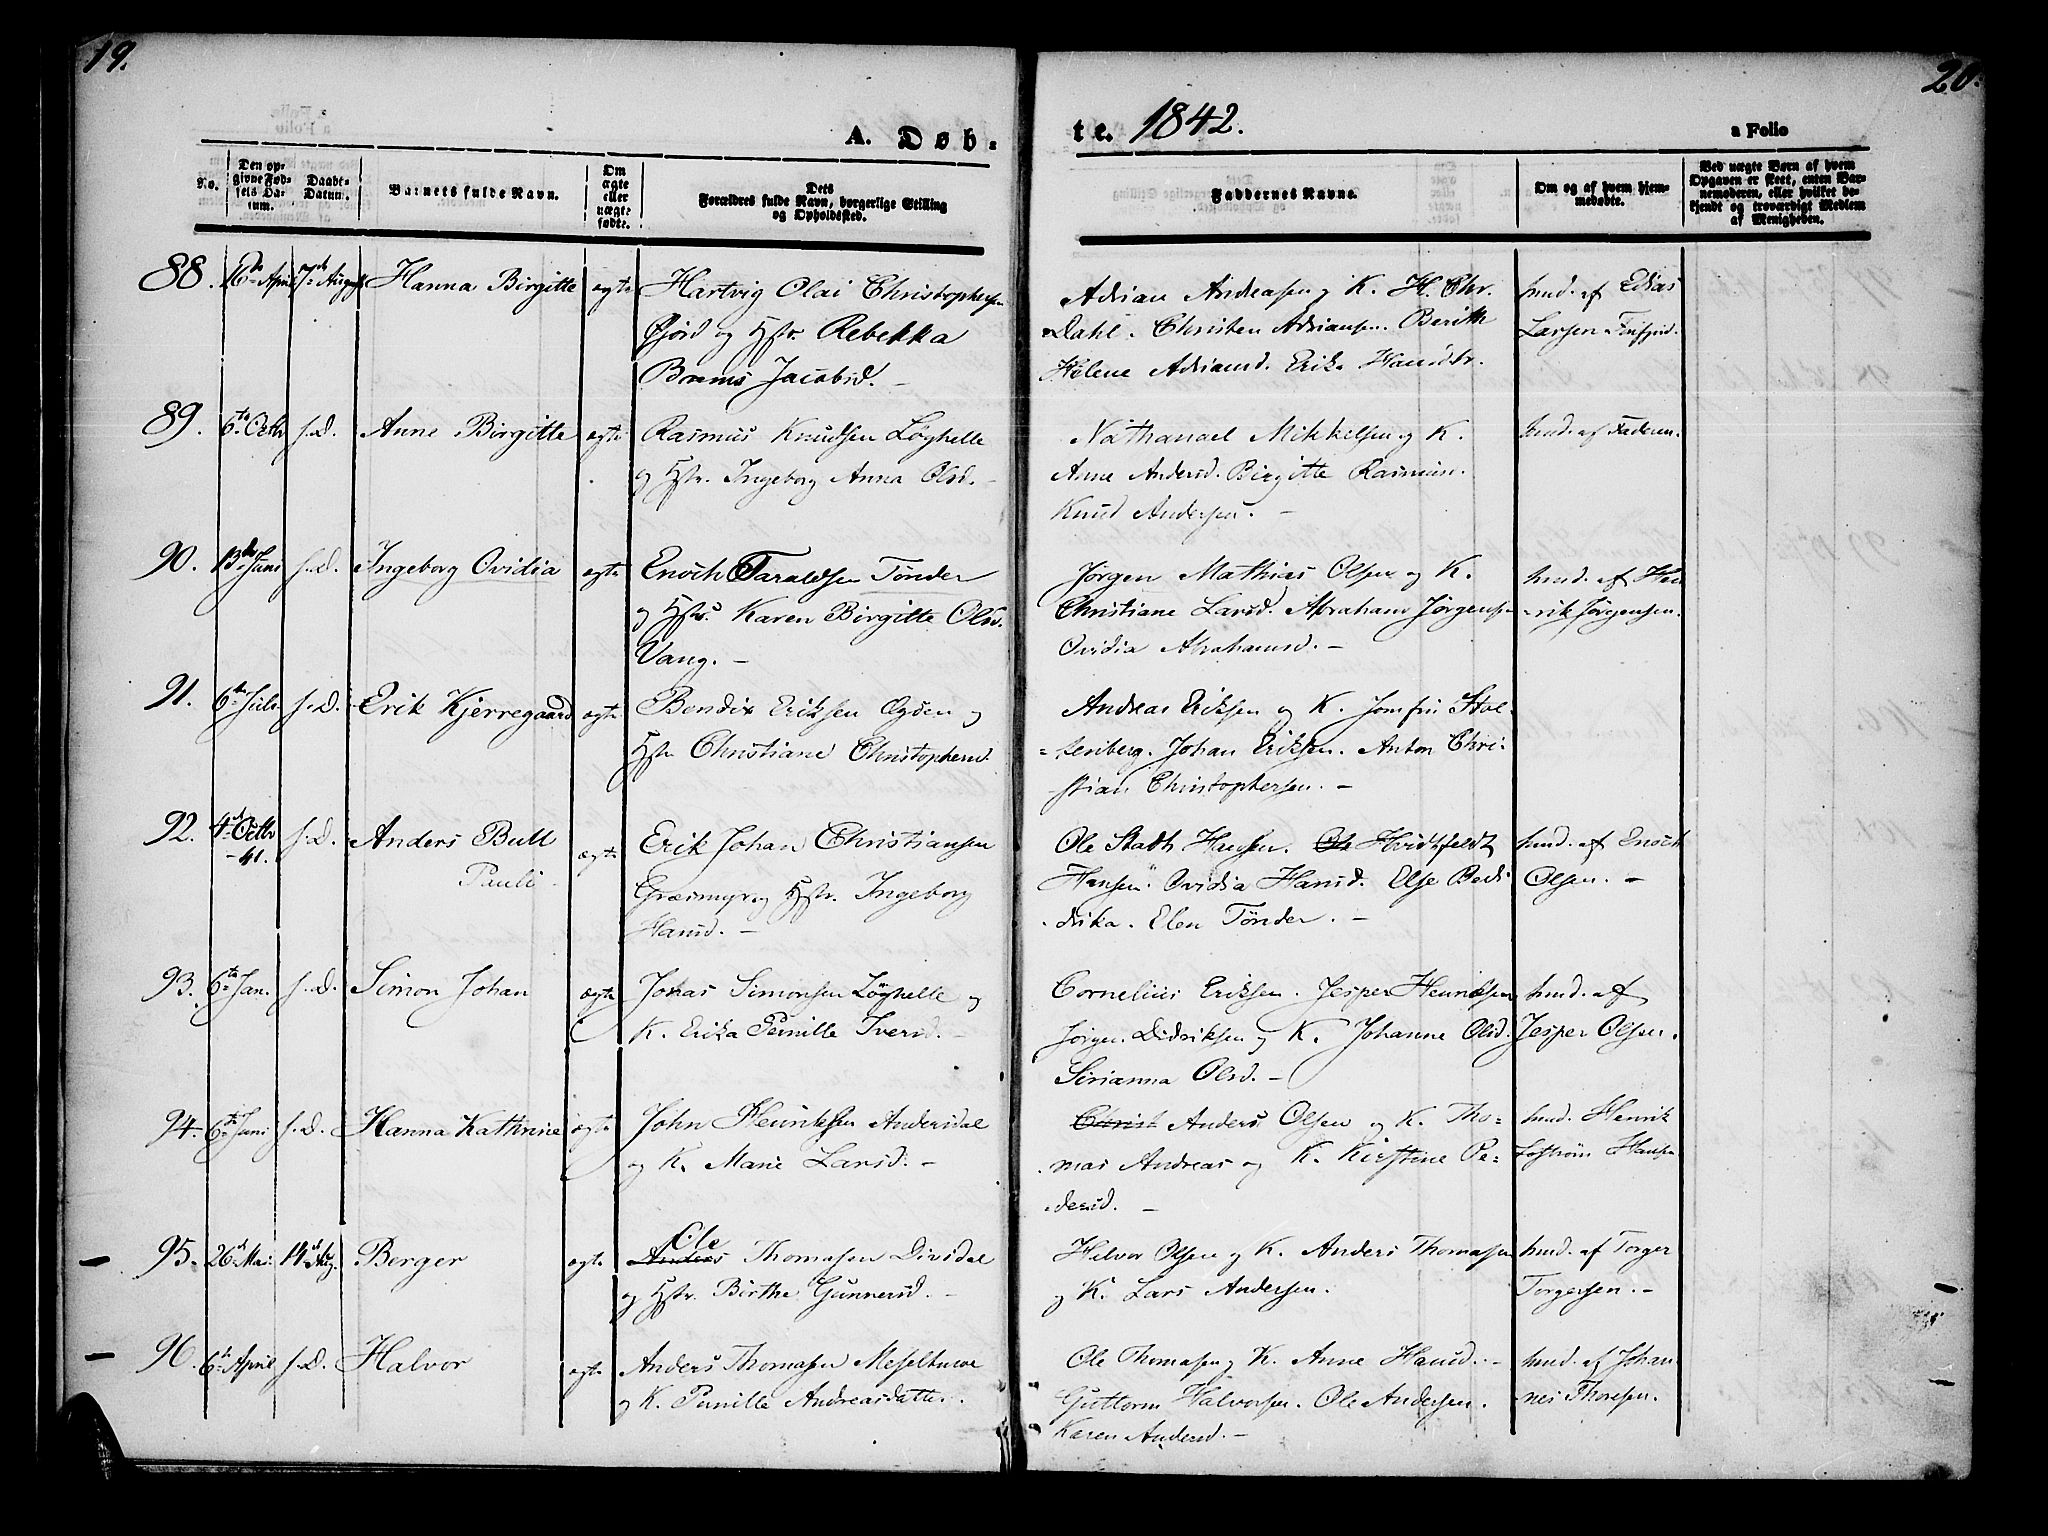 19.
20.
A. Døb-
te. 1842.
a Folio
No.
Den op-
givne Fød-
sels Da-
tum.
Daabs-
Datum.
Barnets fulde Navn.
Om
ægte
eller
uægte
fødte.
Dets
Forældres fulde Navn, borgerlige Stilling
og Opholdssted.
Faddernes Navne.
Om og af hvem hjem-
medøbte.
Ved uægte Børn af hvem
Opgaven er skeet, enten Bar-
nemoderen, eller hvilket be-
kjendt og troværdigt Medlem
af Menigheden.
88. 16de April 7de August Hanna Birgitte ægte Hartvig Olai Christophersen
Fjord og Hstr. Rebekka
Brems Jacobsd. –
Adrian Andreasen og K. H. Chr.
Dahl. Christen Adriansen. Berith
Helene Adriansd. Erika Hansdtr.
hmd. af
Larsen Finfjord.
89. 6te Octbr s.D. Anne Birgitte ægte Rasmus Knudsen Løghelle
og Hstr. Ingeborg Anna Olsd. –
Nathanael Mikkelsen og K.
Anne Andersd. Birgitte Rasmusn.
Knud Andersen. –
hmd. af Faderen.
90. 13de Juni s.D. Ingeborg Ovidia ægte Enoch Taraldsen Tönder
og Hstr. Karen Birgitte Olsd.
Vang. –
Jørgen Mathias Olsen og K.
Christiane Larsd. Abraham Jørgensen
Ovidia Abrahamsd. –
hmd. af Hen
-rik Jørgensen.
91. 6te Juli s.D. Erik Kjerregaard ægte Bendix Eriksen Ogden og
Hstr Christiane Christophersd.
Andreas Eriksen og K. Jomfru Stol-
=tenberg. Johan Eriksen. Anton Chri-
stian Christophersen. –
92. 4de Octbr s.D. Anders Bull ægte Erik Johan Christiansen
-41.
Pauli
Græsmyr og Hstr. Ingeborg
Hansd. –
Ole Stadh Hansen. Ole Hvidtfeldt
Hansen. Ovidia Hansd. Else Bedi
-drika. Elen Tönder. –
hmd. af Enoch
Olsen. –
93. 6te Jan. s.D. Simon Johan ægte Johas Simonsen Løghelle og
K. Erika Pernille Iversd. –
Cornelius Eriksen. Jesper Henriksen
Jørgen Didriksen og K. Johanne Olsd.
Sirianna Olsd. –
hmd. af
Jesper Olsen.
94. 6te Juni s.D. Hanna Kathrine ægte John Henriksen Andersdal
og K. Marie Larsd. –
Christ Anders Olsen og K. Tho-
mas Andreas og K. Kirstine Pe-
dersd. –
hmd. Henrik
Hansen
95. 26de Mai 14de Aug. Berger ægte Anders Ole Thomasen Dividal
og Hstr. Birthe Gunnersd. –
Halvor Olsen og K. Anders Thomasen
og K. Lars Andersen.
hmd. af Torger
Torgersen. –
96. 6te April s.D. Halvor ægte Anders Thomasen
og K. Pernille Andreasdatter.
Ole Thomasen og K. Anne Hansd. –
Guttorm Halvorsen. Ole Andersen.
Karen Andersd. –
hmd. af Johan
nes Thoresen.